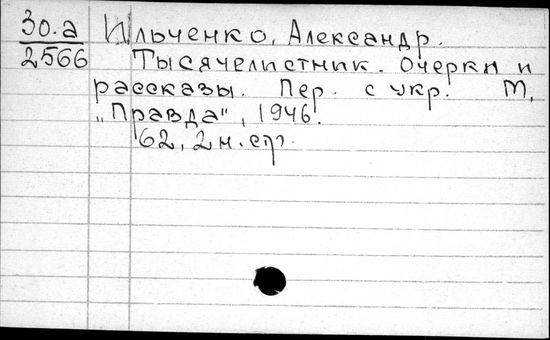 30.а Ильченко, Александр.
2566 Тысячелистник. Очерки и
рассказы. Пер. с укр. М,
„Правда", 1946.
62, 2 н. стр.